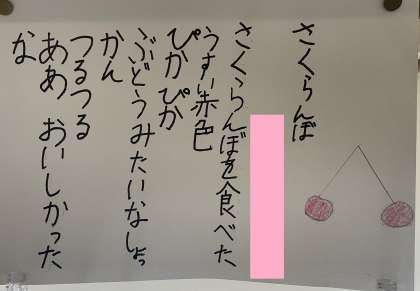 さくらんぼ
さくらんぼを食べた
うすい赤色
ぴかぴか
ぶどうみたいなしょっ
かん
つるつる
ああ おいしかった
な